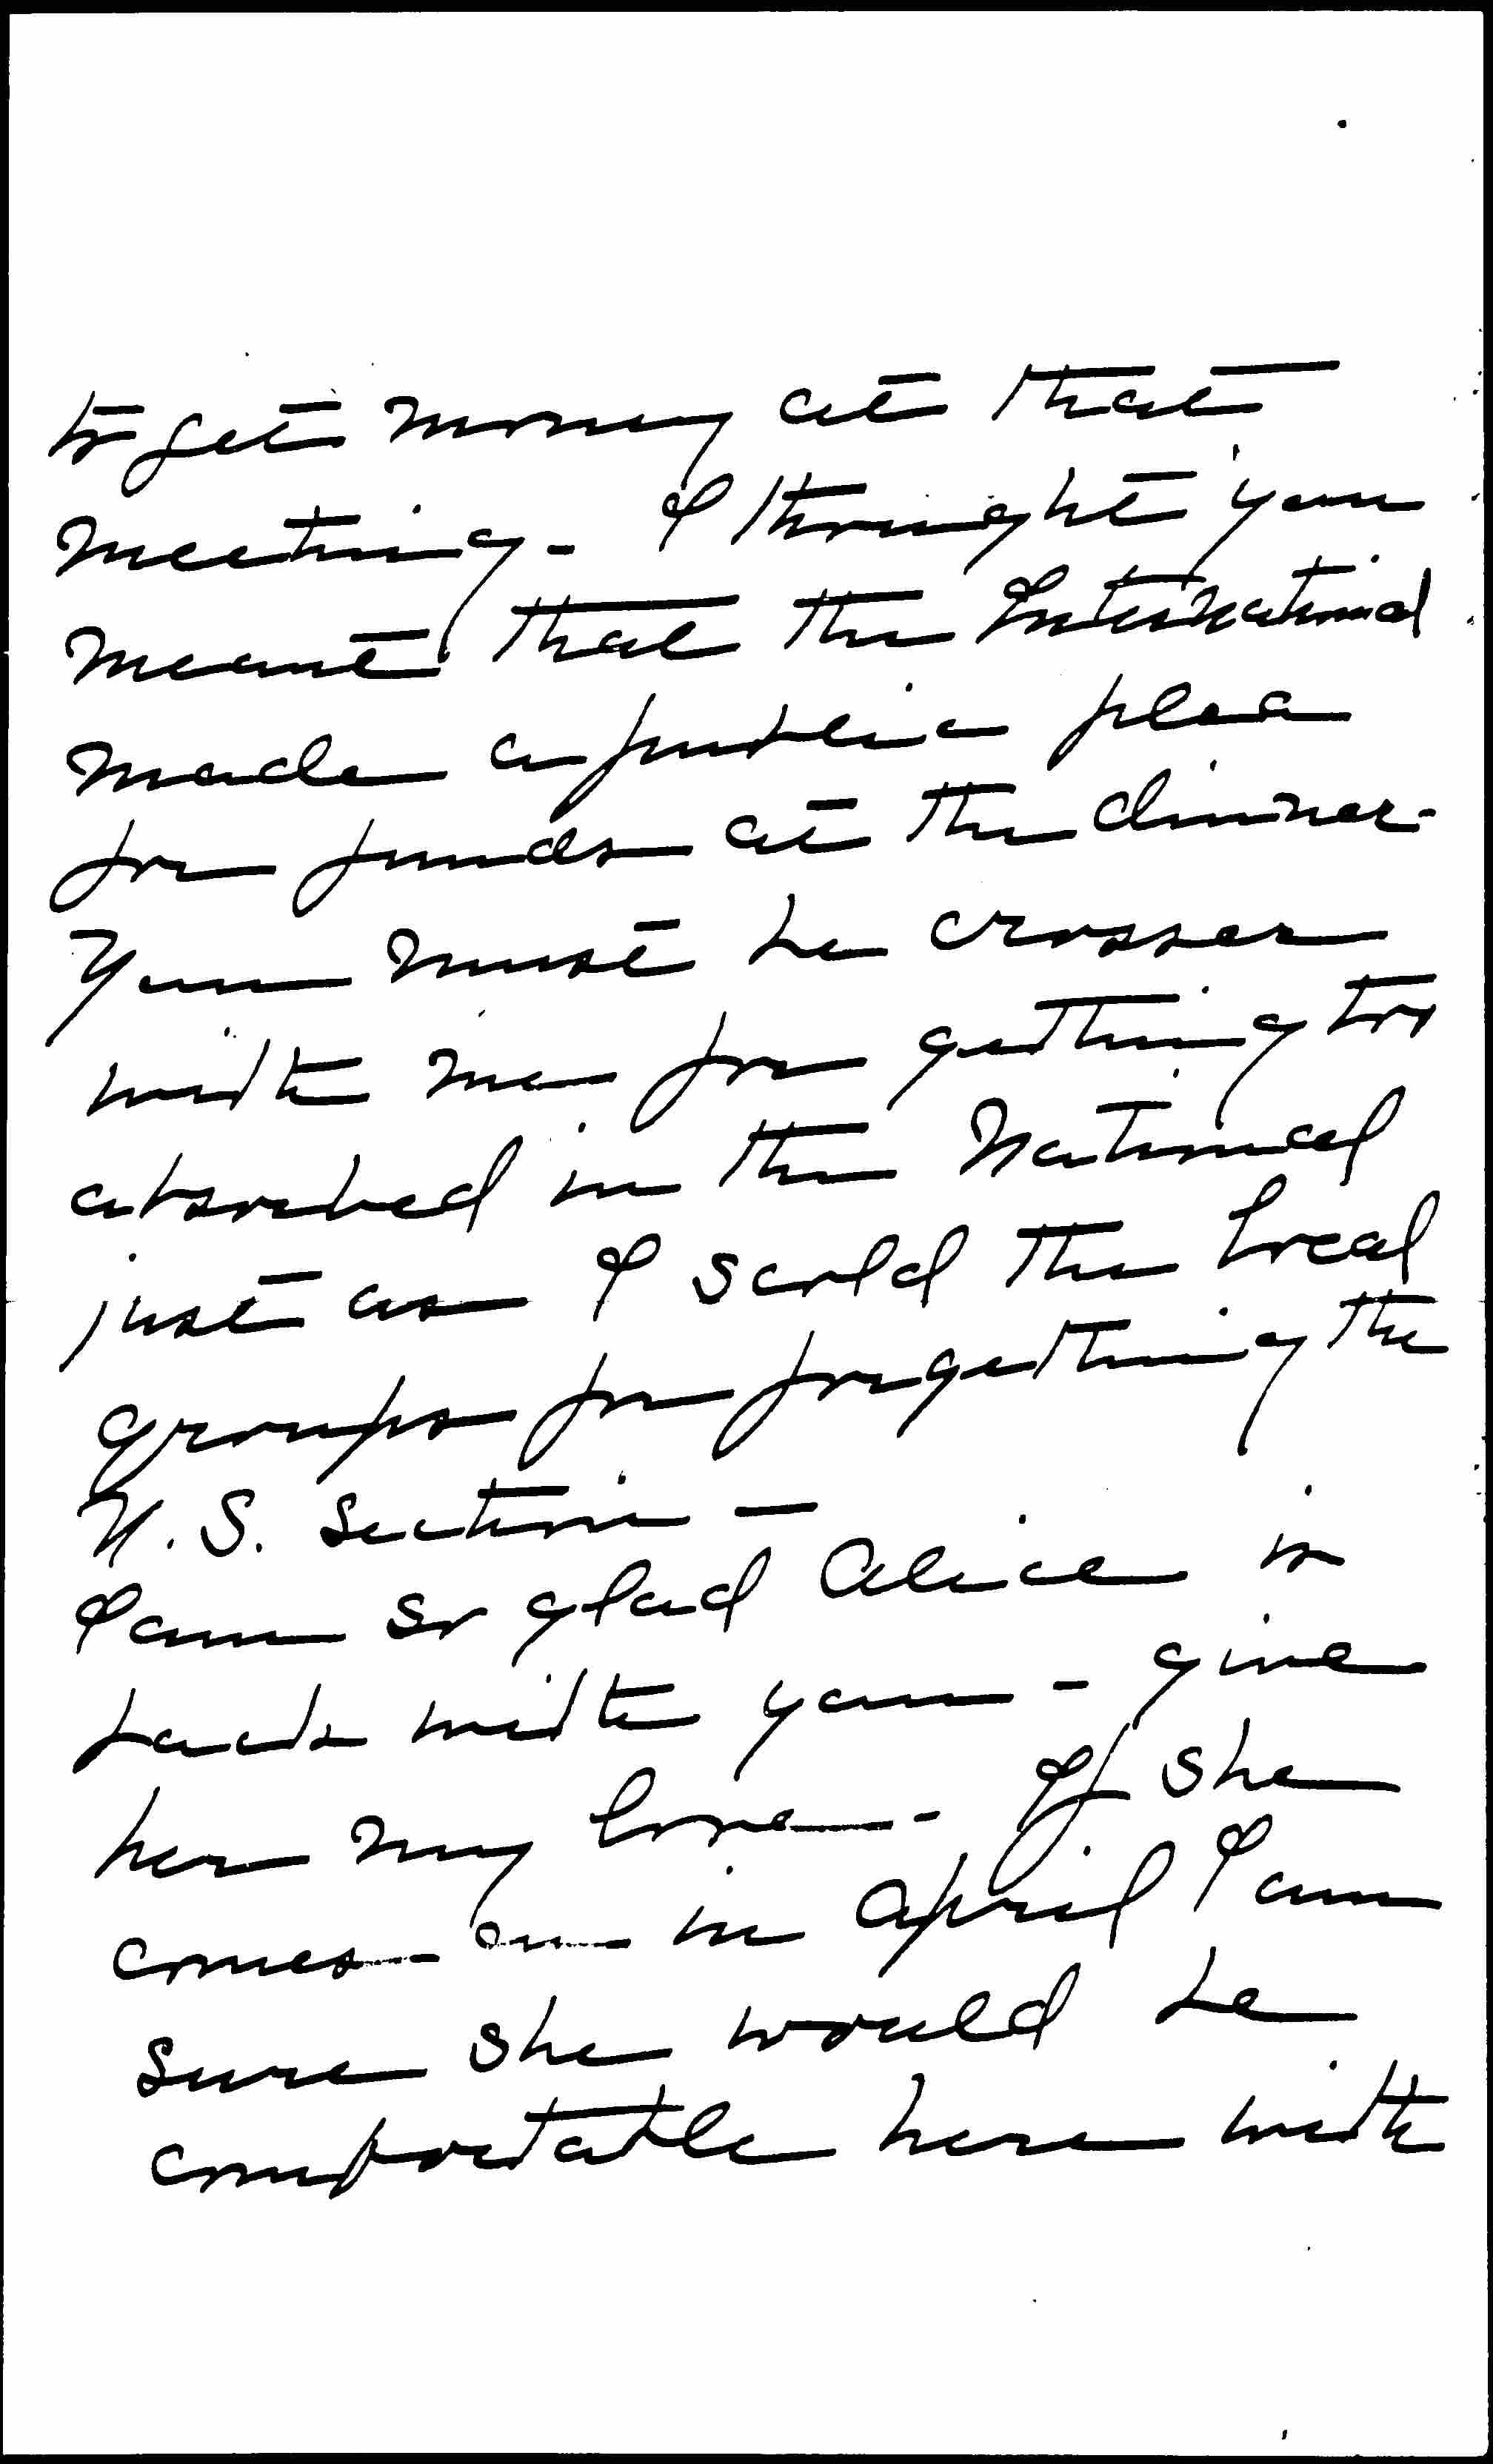 to get money at that
meeting - I thought you
meant that the International
made a public plea
for funds at the dinner -
You must be crosser
with me for getting too
absorbed in the National
just as I scold the Local
groups for forgetting the
U.S. Section -
I am so glad Alice is
back with you - give
her my love - If she
comes on in April I am
sure she would be
comfortable here with